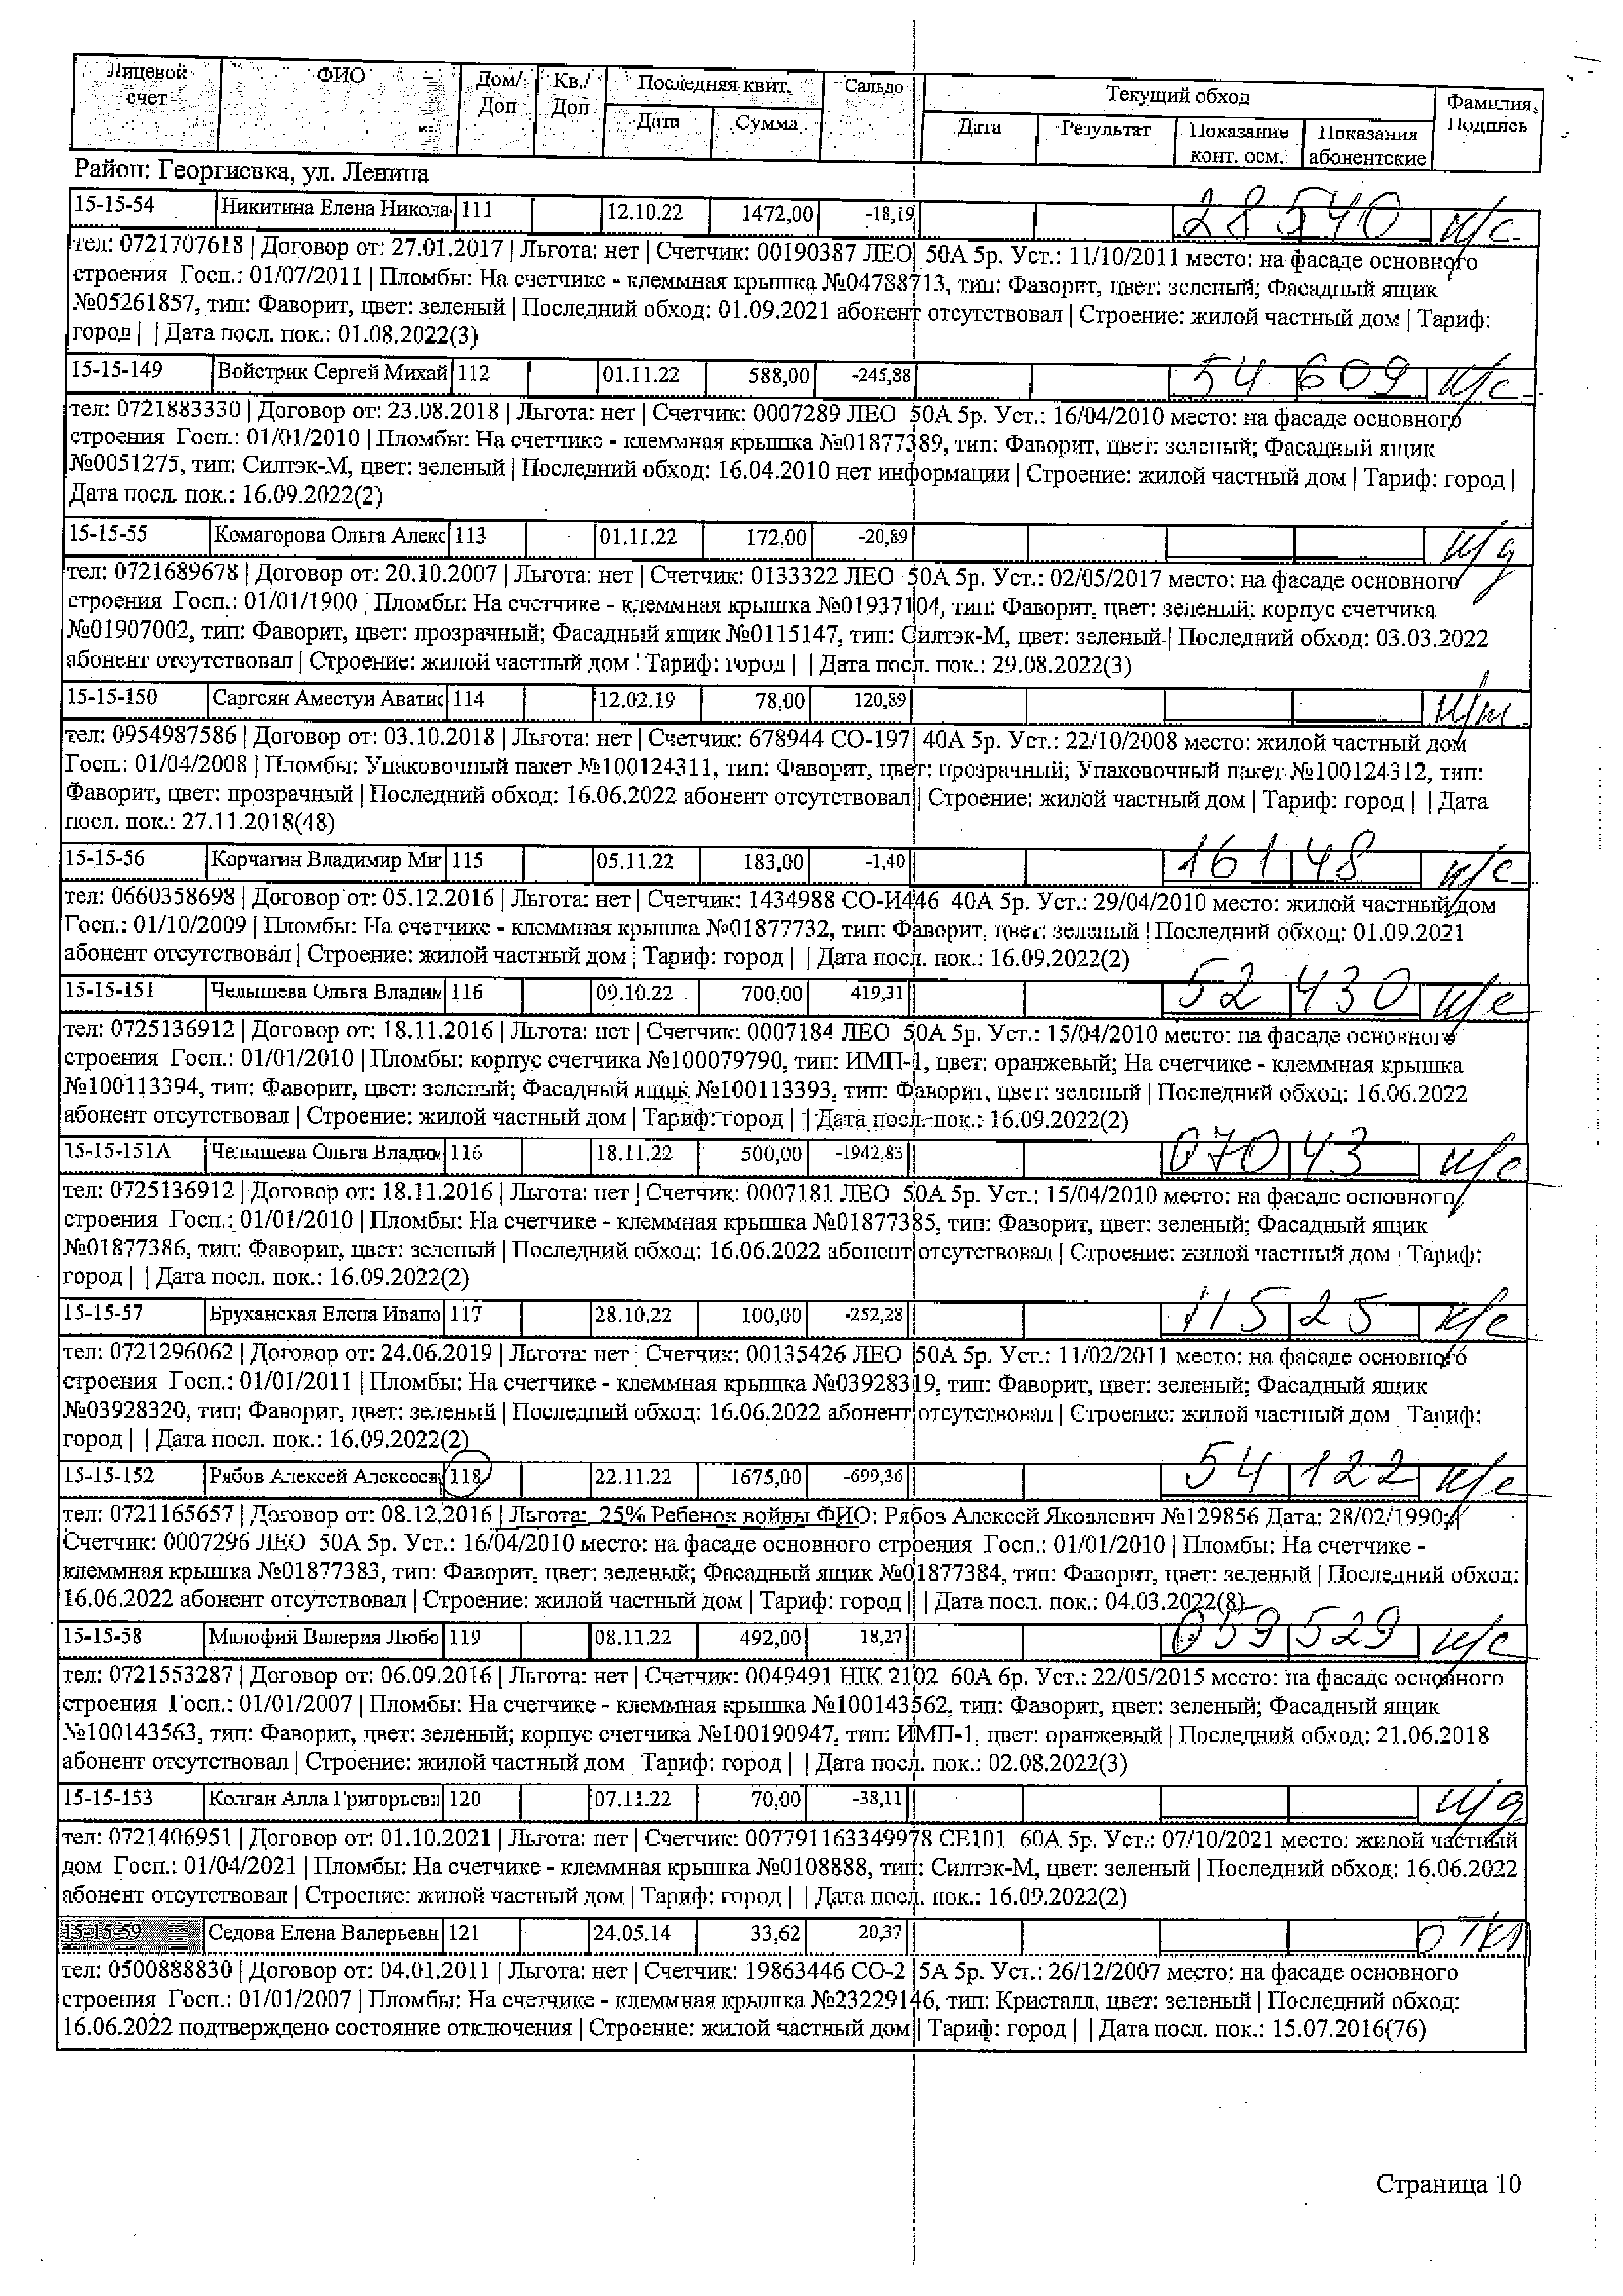 Лицевой счет ФИО Дом/Доп Кв./Доп Последняя квит. Сальдо Текущий обход Фамилия, Подпись
Дата Сумма Дата Результат Показание конт. осм. Показания абонентские
Район: Георгиевка, ул. Ленина
15-15-54 Никитина Елена Никола 111 12.10.22 1472,00 -18,19 28540 н/с
тел: 0721707618 | Договор от: 27.01.2017 | Льгота: нет | Счетчик: 00190387 ЛЕО 50А 5р. Уст.: 11/10/2011 место: на фасаде основного
строения Госп.: 01/07/2011 | Пломбы: На счетчике - клеммная крышка №04788713, тип: Фаворит, цвет: зеленый; Фасадный ящик
№05261857, тип: Фаворит, цвет: зеленый | Последний обход: 01.09.2021 абонент отсутствовал | Строение: жилой частный дом | Тариф:
город | | Дата посл. пок.: 01.08.2022(3)
15-15-149 Войстрик Сергей Михай 112 01.11.22 588,00 -245,88 54609 н/с
тел: 0721883330 | Договор от: 23.08.2018 | Льгота: нет | Счетчик: 0007289 ЛЕО 50А 5р. Уст.: 16/04/2010 место: на фасаде основного
строения Госп.: 01/01/2010 | Пломбы: На счетчике - клеммная крышка №01877389, тип: Фаворит, цвет: зеленый; Фасадный ящик
№0051275, тип: Силтэк-М, цвет: зеленый | Последний обход: 16.04.2010 нет информации | Строение: жилой частный дом | Тариф: город |
Дата посл. пок.: 16.09.2022(2)
15-15-55 Комагорова Ольга Алекс 113 01.11.22 172,00 -20,89 н/д
тел: 0721689678 | Договор от: 20.10.2007 | Льгота: нет | Счетчик: 0133322 ЛЕО 50А 5р. Уст.: 02/05/2017 место: на фасаде основного
строения Госп.: 01/01/1900 | Пломбы: На счетчике - клеммная крышка №01937104, тип: Фаворит, цвет: зеленый; корпус счетчика
№01907002, тип: Фаворит, цвет: прозрачный; Фасадный ящик №0115147, тип: Силтэк-М, цвет: зеленый | Последний обход: 03.03.2022
абонент отсутствовал | Строение: жилой частный дом | Тариф: город | | Дата посл. пок.: 29.08.2022(3)
15-15-150 Саргсян Аместуи Аватис 114 12.02.19 78,00 120,89
тел: 0954987586 | Договор от: 03.10.2018 | Льгота: нет | Счетчик: 678944 СО-197 40А 5р. Уст.: 22/10/2008 место: жилой частный дом
Госп.: 01/04/2008 | Пломбы: Упаковочный пакет №100124311, тип: Фаворит, цвет: прозрачный; Упаковочный пакет №100124312, тип:
Фаворит, цвет: прозрачный | Последний обход: 16.06.2022 абонент отсутствовал | Строение: жилой частный дом | Тариф: город | | Дата
посл. пок.: 27.11.2018(48)
15-15-56 Корчагин Владимир Миг 115 05.11.22 183,00 -1,40 16148 н/с
тел: 0660358698 | Договор от: 05.12.2016 | Льгота: нет | Счетчик: 1434988 СО-И446 40А 5р. Уст.: 29/04/2010 место: жилой частный дом
Госп.: 01/10/2009 | Пломбы: На счетчике - клеммная крышка №01877732, тип: Фаворит, цвет: зеленый | Последний обход: 01.09.2021
абонент отсутствовал | Строение: жилой частный дом | Тариф: город | | Дата посл. пок.: 16.09.2022(2)
15-15-151 Челышева Ольга Владим 116 09.10.22 700,00 419,31 52430 н/с
тел: 0725136912 | Договор от: 18.11.2016 | Льгота: нет | Счетчик: 0007184 ЛЕО 50А 5р. Уст.: 15/04/2010 место: на фасаде основного
строения Госп.: 01/01/2010 | Пломбы: корпус счетчика №100079790, тип: ИМП-1, цвет: оранжевый; На счетчике - клеммная крышка
№100113394, тип: Фаворит, цвет: зеленый; Фасадный ящик №100113393, тип: Фаворит, цвет: зеленый | Последний обход: 16.06.2022
абонент отсутствовал | Строение: жилой частный дом | Тариф: город | | Дата посл. пок.: 16.09.2022(2)
15-15-151А Челышева Ольга Владим 116 18.11.22 500,00 -1942,83 07043 н/с
тел: 0725136912 | Договор от: 18.11.2016 | Льгота: нет | Счетчик: 0007181 ЛЕО 50А 5р. Уст.: 15/04/2010 место: на фасаде основного
строения Госп.: 01/01/2010 | Пломбы: На счетчике - клеммная крышка №01877385, тип: Фаворит, цвет: зеленый; Фасадный ящик
№01877386, тип: Фаворит, цвет: зеленый | Последний обход: 16.06.2022 абонент отсутствовал | Строение: жилой частный дом | Тариф:
город | | Дата посл. пок.: 16.09.2022(2)
15-15-57 Бруханская Елена Ивано 117 28.10.22 100,00 -252,28 11525 н/с
тел: 0721296062 | Договор от: 24.06.2019 | Льгота: нет | Счетчик: 00135426 ЛЕО 50А 5р. Уст.: 11/02/2011 место: на фасаде основного
строения Госп.: 01/01/2011 | Пломбы: На счетчике - клеммная крышка №03928319, тип: Фаворит, цвет: зеленый; Фасадный ящик
№03928320, тип: Фаворит, цвет: зеленый | Последний обход: 16.06.2022 абонент отсутствовал | Строение: жилой частный дом | Тариф:
город | | Дата посл. пок.: 16.09.2022(2)
15-15-152 Рябов Алексей Алексеев 118 22.11.22 1675,00 -699,36 54122 н/с
тел: 0721165657 | Договор от: 08.12.2016 | Льгота: 25% Ребенок войны ФИО: Рябов Алексей Яковлевич №129856 Дата: 28/02/1990;
Счетчик: 0007296 ЛЕО 50А 5р. Уст.: 16/04/2010 место: на фасаде основного строения Госп.: 01/01/2010 | Пломбы: На счетчике -
клеммная крышка №01877383, тип: Фаворит, цвет: зеленый; Фасадный ящик №01877384, тип: Фаворит, цвет: зеленый | Последний обход:
16.06.2022 абонент отсутствовал | Строение: жилой частный дом | Тариф: город | | Дата посл. пок.: 04.03.2022(8)
15-15-58 Малофий Валерия Любо 119 08.11.22 492,00 18,27 059529 н/с
тел: 0721553287 | Договор от: 06.09.2016 | Льгота: нет | Счетчик: 0049491 НІК 2102 60А 6р. Уст.: 22/05/2015 место: на фасаде основного
строения Госп.: 01/01/2007 | Пломбы: На счетчике - клеммная крышка №100143562, тип: Фаворит, цвет: зеленый; Фасадный ящик
№100143563, тип: Фаворит, цвет: зеленый; корпус счетчика №100190947, тип: ИМП-1, цвет: оранжевый | Последний обход: 21.06.2018
абонент отсутствовал | Строение: жилой частный дом | Тариф: город | | Дата посл. пок.: 02.08.2022(3)
15-15-153 Колган Алла Григорьевн 120 07.11.22 70,00 -38,11 н/д
тел: 0721406951 | Договор от: 01.10.2021 | Льгота: нет | Счетчик: 007791163349978 СЕ101 60А 5р. Уст.: 07/10/2021 место: жилой частный
дом Госп.: 01/04/2021 | Пломбы: На счетчике - клеммная крышка №0108888, тип: Силтэк-М, цвет: зеленый | Последний обход: 16.06.2022
абонент отсутствовал | Строение: жилой частный дом | Тариф: город | | Дата посл. пок.: 16.09.2022(2)
15-15-59 Седова Елена Валерьевн 121 24.05.14 33,62 20,37 откл
тел: 0500888830 | Договор от: 04.01.2011 | Льгота: нет | Счетчик: 19863446 СО-2 5А 5р. Уст.: 26/12/2007 место: на фасаде основного
строения Госп.: 01/01/2007 | Пломбы: На счетчике - клеммная крышка №23229146, тип: Кристалл, цвет: зеленый | Последний обход:
16.06.2022 подтверждено состояние отключения | Строение: жилой частный дом | Тариф: город | | Дата посл. пок.: 15.07.2016(76)
Страница 10